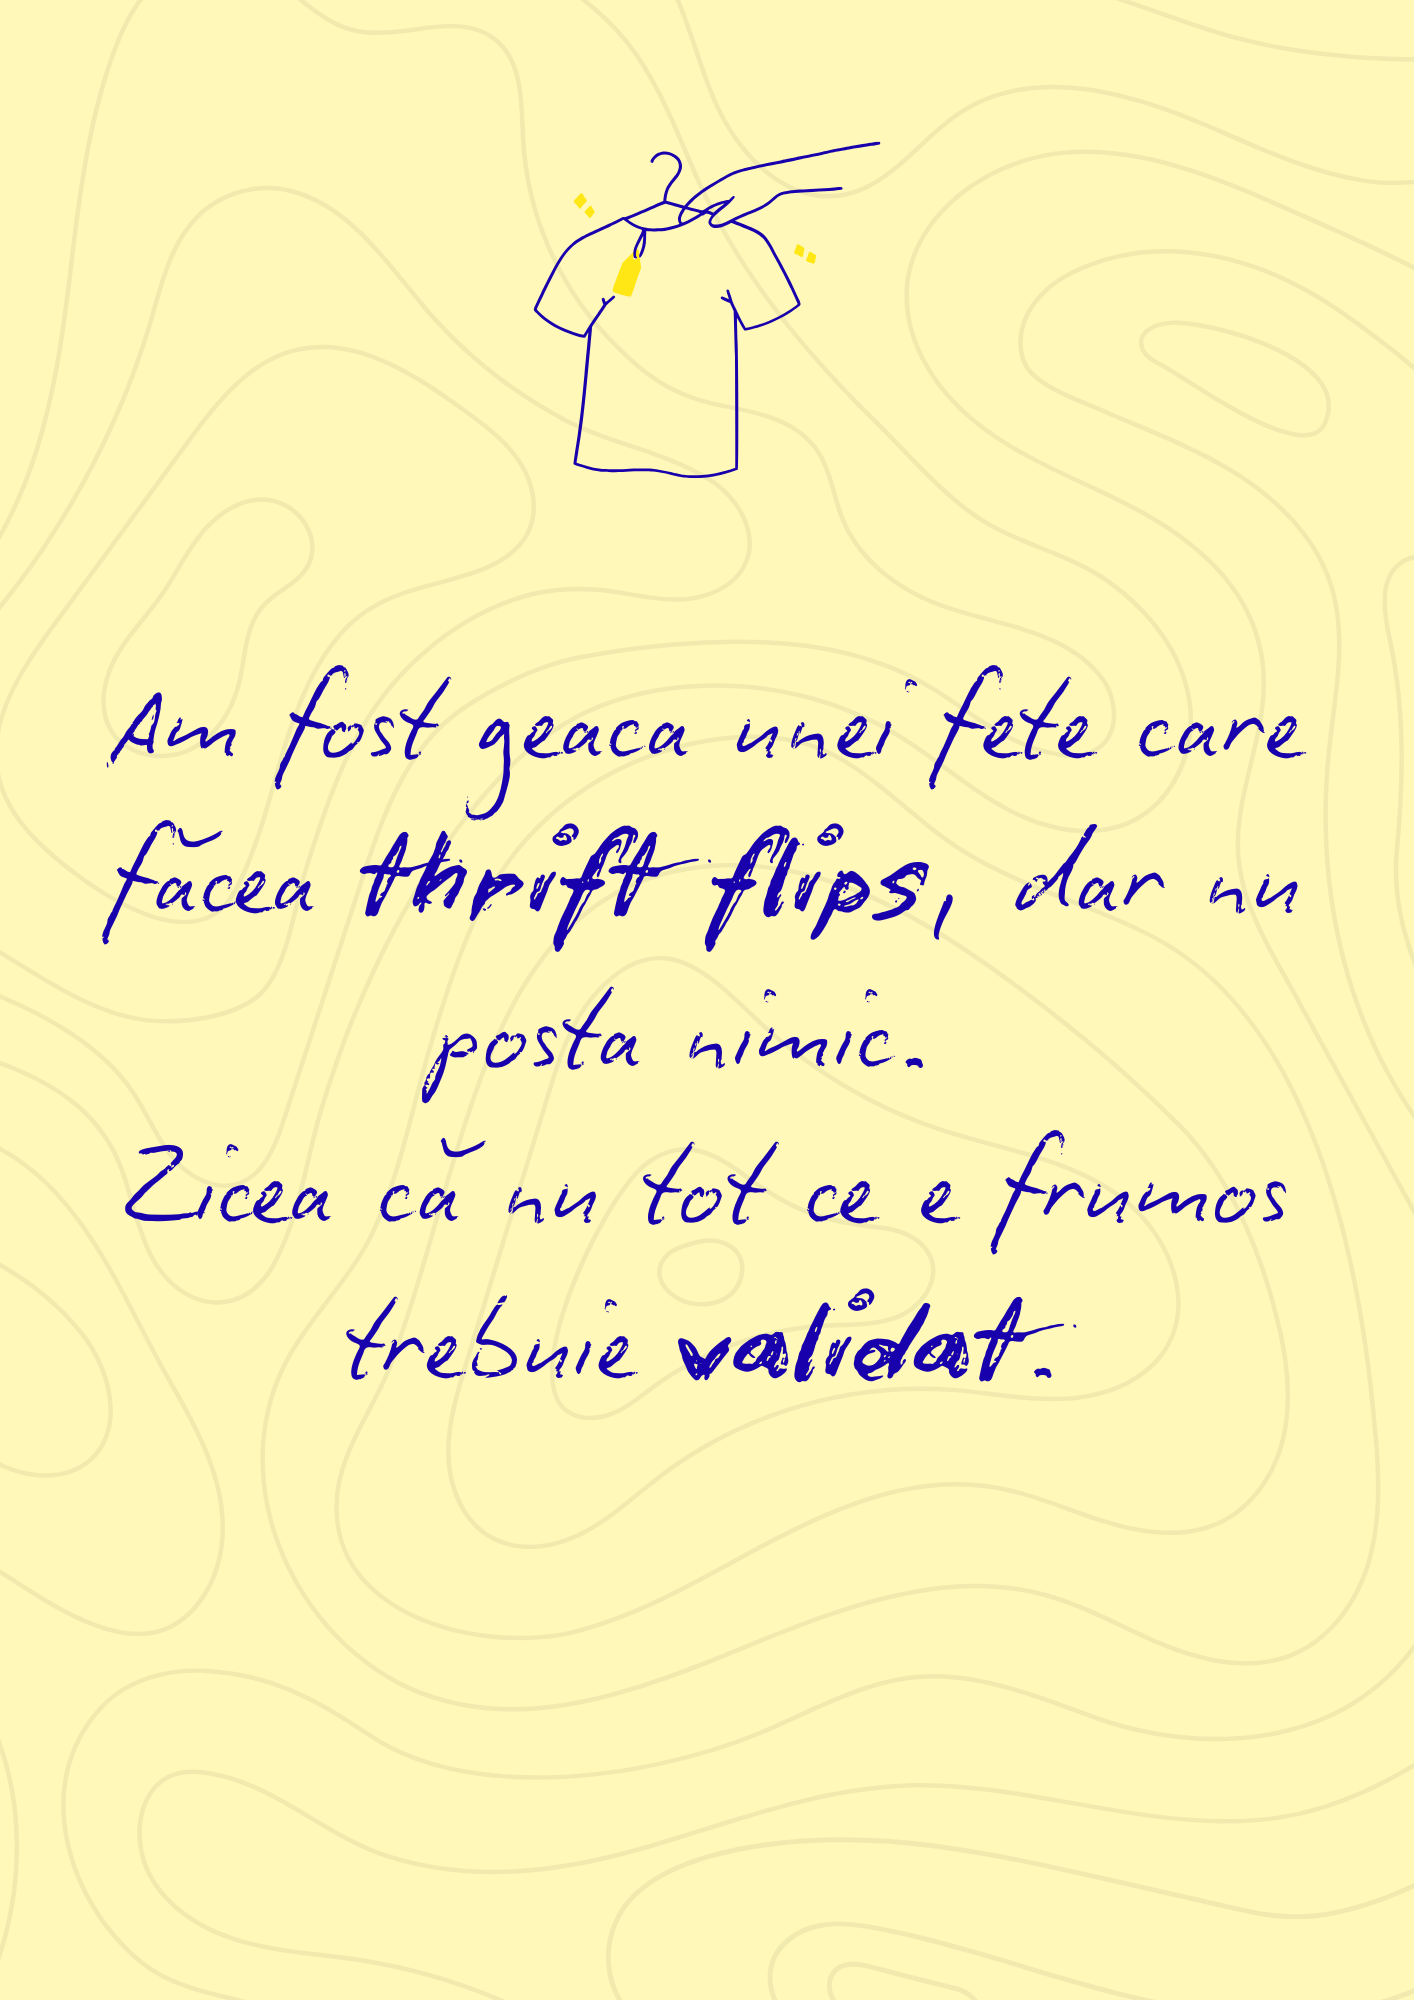 Am fost geaca unei fete care
făcea thrift flips, dar nu
posta nimic.
Zicea că nu tot ce e frumos
trebuie validat.